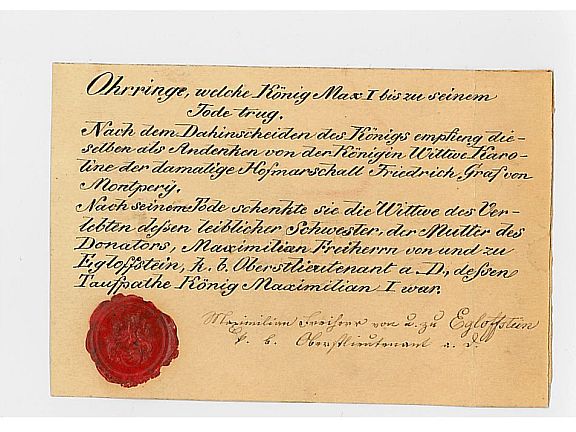 Ohrringe, welche König Max I bis zu seinem
Tode trug.
Nach dem Dahinscheiden des Königs empfieng die-
selben als Andenken von der Königin Wittwe Karo-
line der damalige Hofmarschall Friedrich Graf von
Montperÿ.
Nach seinem Tode schenkte sie die Wittwe des Ver-
lebten deßen leiblicher Schwester, der Mutter des
Donators, Maximilian Freiherrn von und zu
Egloffstein, k. b. Oberstlieutenant a. D., deßen
Taufpathe König Maximilian I war.
Maximilian Freiherr von u. zu Egloffstein
k. b. Oberstlieutenant a. d.